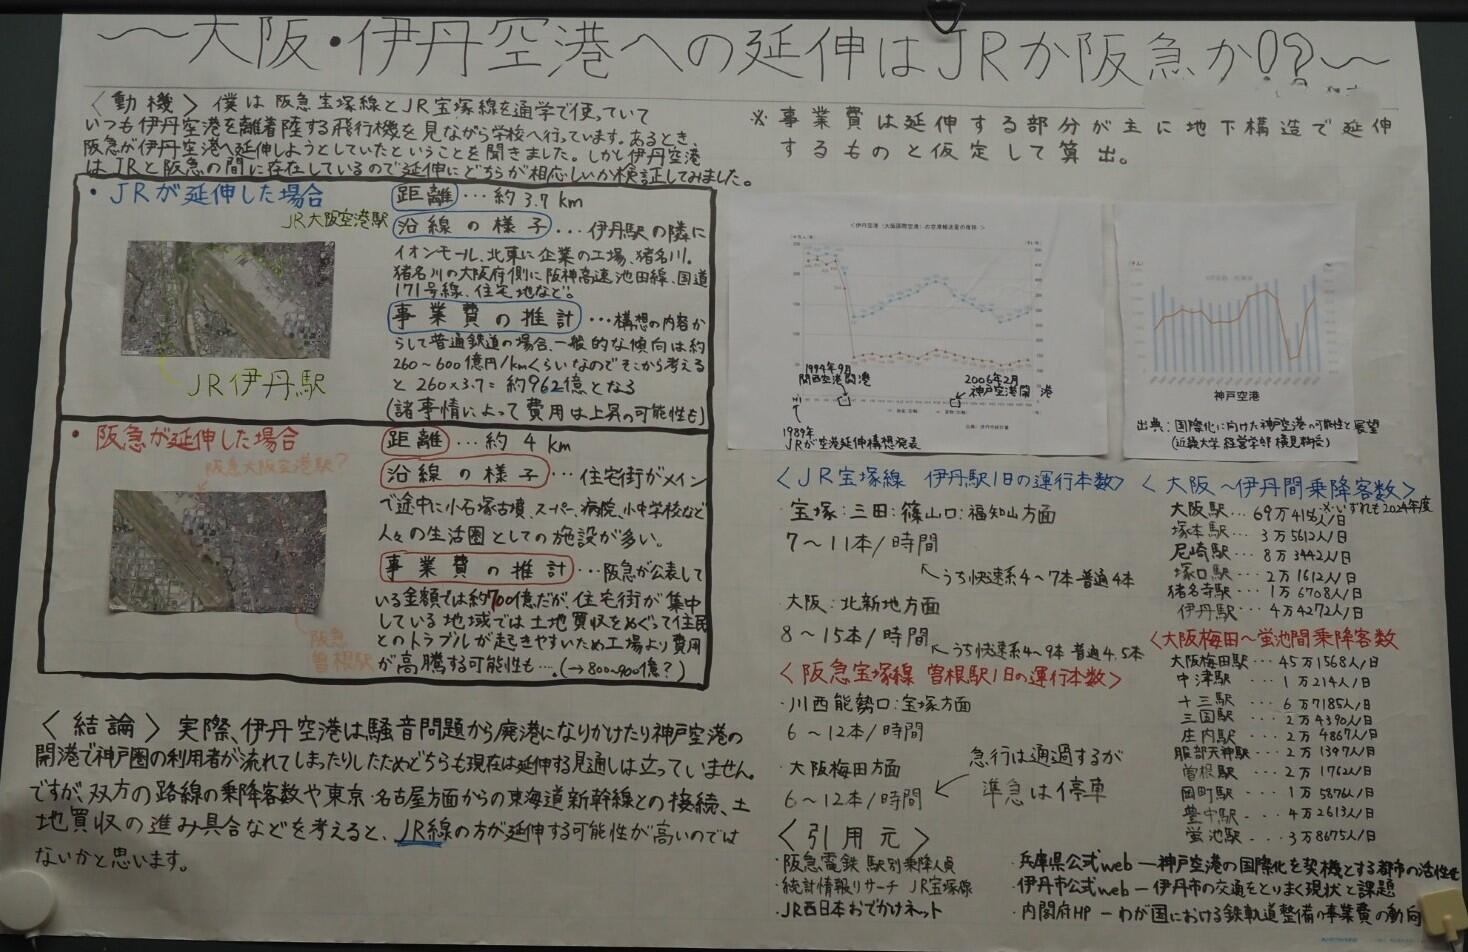 ～大阪・伊丹空港への延伸はJRか阪急か!?～
〈動機〉僕は阪急宝塚線とJR宝塚線を通学で使っていて
いつも伊丹空港を離着陸する飛行機を見ながら学校へ行っています。あるとき、
阪急が伊丹空港へ延伸しようとしていたということを聞きました。しかし伊丹空港
はJRと阪急の間に存在しているので延伸にどちらが相応しいか検証してみました。
・JRが延伸した場合
JR大阪空港駅
JR伊丹駅
距離…約3.7km
沿線の様子…伊丹駅の隣に
イオンモール、北東に企業の工場、猪名川。
猪名川の大阪府側に阪神高速池田線、国道
171号線、住宅地など。
事業費の推計…構想の内容か
らして普通鉄道の場合、一般的な傾向は約
260～600億円/kmくらいなのでそこから考える
と260×3.7=約962億となる
(諸事情によって費用は上昇の可能性も)
・阪急が延伸した場合
阪急大阪空港駅?
阪急
曽根駅
距離…約4km
沿線の様子…住宅街がメイン
で途中に小石塚古墳、スーパー、病院、小中学校など
人々の生活圏としての施設が多い。
事業費の推計…阪急が公表して
いる金額では約700億だが、住宅街が集中
している地域では土地買収をめぐって住民
とのトラブルが起きやすいため工場より費用
が高騰する可能性も…(→800~900億?)
〈結論〉実際、伊丹空港は騒音問題から廃港になりかけたり神戸空港の
開港で神戸圏の利用者が流れてしまったりしたためどちらも現在は延伸する見通しは立っていません。
ですが、双方の路線の乗降客数や東京・名古屋方面からの東海道新幹線との接続、土
地買収の進み具合などを考えると、JR線の方が延伸する可能性が高いのでは
ないかと思います。
※事業費は延伸する部分が主に地下構造で延伸
するものと仮定して算出。
<伊丹空港（大阪国際空港）の空港輸送量の推移>
1994年9月
関西空港開港
2006年2月
神戸空港開港
1989年
JRが空港延伸構想発表
神戸空港
出典：国際化に向けた神戸空港の可能性と展望
(近畿大学 経営学部 横見教授)
〈JR宝塚線 伊丹駅1日の運行本数〉
・宝塚：三田：篠山口：福知山方面
7～11本/時間
うち快速系4～7本 普通4本
・大阪：北新地方面
8～15本/時間
うち快速系4～9本 普通4.5本
〈阪急宝塚線 曽根駅1日の運行本数〉
・川西能勢口：宝塚方面
6～12本/時間
・大阪梅田方面
6～12本/時間
急行は通過するが
準急は停車
〈大阪～伊丹間乗降客数〉
※いずれも2024年度
大阪駅…69万4151人/日
塚本駅…3万5612人/日
尼崎駅…8万3442人/日
塚口駅…2万1612人/日
猪名寺駅…1万6708人/日
伊丹駅…4万4272人/日
〈大阪梅田～蛍池間乗降客数
大阪梅田駅…45万1568人/日
中津駅…1万214人/日
十三駅…6万7185人/日
三国駅…2万4390人/日
庄内駅…2万4867人/日
服部天神駅…2万1397人/日
曽根駅…2万1762人/日
岡町駅…1万5876人/日
豊中駅…4万2613人/日
蛍池駅…3万8675人/日
〈引用元〉
・阪急電鉄 駅別乗降人員
・統計情報リサーチ JR宝塚線
・JR西日本おでかけネット
・兵庫県公式web―神戸空港の国際化を契機とする都市の活性化
・伊丹市公式web―伊丹市の交通をとりまく現状と課題
・内閣府HP―わが国における鉄軌道整備の事業費の動向